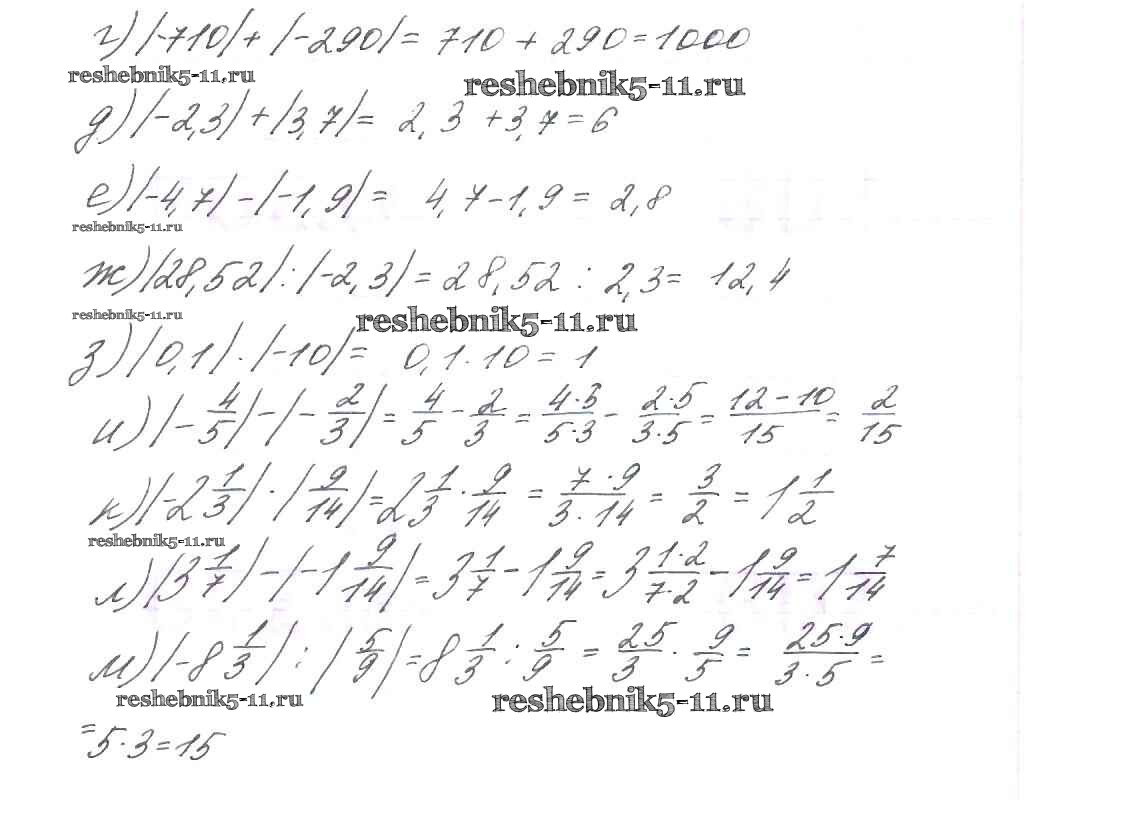 г) |-710| + |-290| = 710 + 290 = 1000
reshebnik5-11.ru reshebnik5-11.ru
д) |-2,3| + |3,7| = 2,3 + 3,7 = 6
е) |-4,7| - |-1,9| = 4,7 - 1,9 = 2,8
reshebnik5-11.ru
ж) |28,52| : |-2,3| = 28,52 : 2,3 = 12,4
reshebnik5-11.ru reshebnik5-11.ru
з) |0,1| · |-10| = 0,1 · 10 = 1
и) |-4/5| - |-2/3| = 4/5 - 2/3 = 4·3/5·3 - 2·5/3·5 = 12-10/15 = 2/15
к) |-2 1/3| · |9/14| = 2 1/3 · 9/14 = 7·9/3·14 = 3/2 = 1 1/2
reshebnik5-11.ru
л) |3 1/7| - |-1 9/14| = 3 1/7 - 1 9/14 = 3 1·2/7·2 - 1 9/14 = 1 7/14
м) |-8 1/3| : |5/9| = 8 1/3 : 5/9 = 25/3 · 9/5 = 25·9/3·5 =
reshebnik5-11.ru reshebnik5-11.ru
= 5·3 = 15